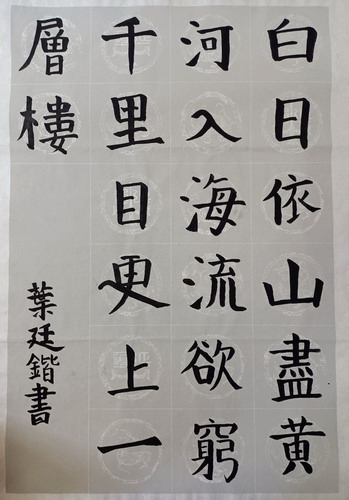 白日依山盡黃
河入海流欲窮
千里目更上一
層樓
葉廷鍇書